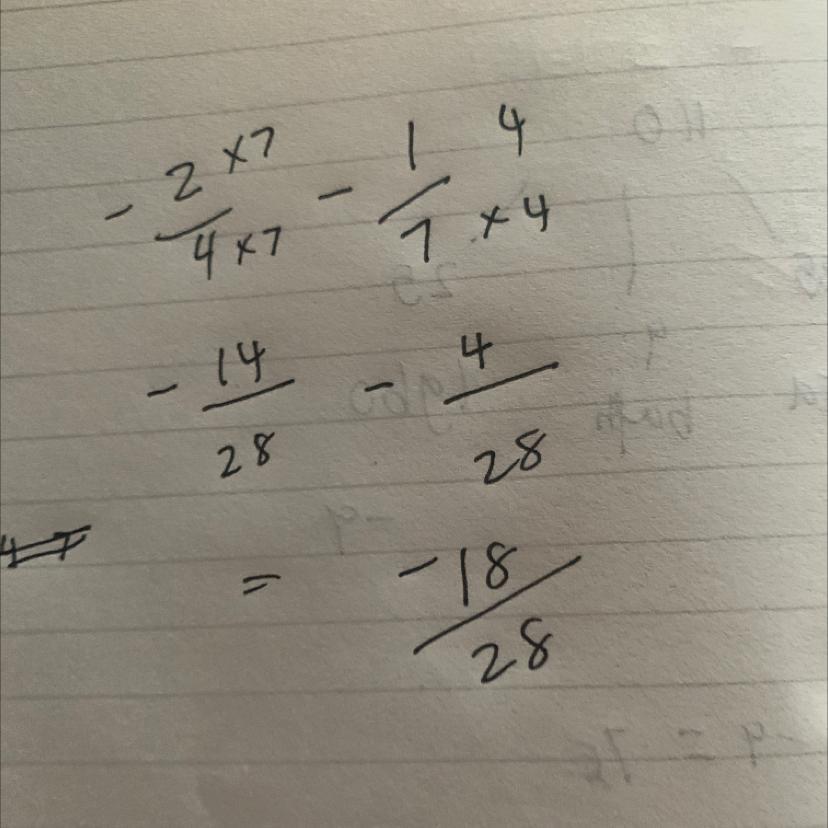 - 2 ×7 / 4 ×7 - 1 4 / 7 × 4
- 14 / 28 - 4 / 28
= -18 / 28